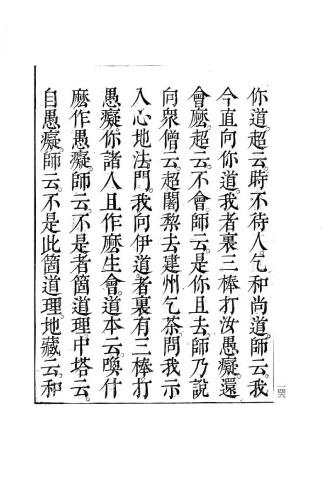 你道。超云。時不待人。乞和尚道。師云。我
今直向你道。我者裏三棒打汝愚癡。還
會麽。超云。不會。師云。是你且去。師乃說
向衆僧云。超闍黎去建州乞茶。問我示
入心地法門。我向伊道。者裏有三棒打
愚癡。你諸人且作麽生會。道本云。喚什
麽作愚癡。師云。不是者箇道理。中塔云。
自愚癡。師云。不是此箇道理。地藏云。和
一四六